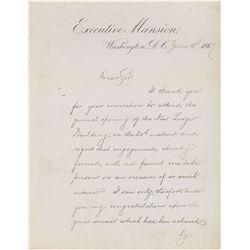 Executive Mansion,
Washington, D.C. June 18th, 1867
Dear Sir
I thank you
for your invitation to attend the
formal opening of the New Ledger
Building, on the 20th instant and
regret that engagements, already
formed, will not permit me to be
present on an occasion of so much
interest. I can only therefore tender
you my congratulations upon the
great success which has been achieved
by